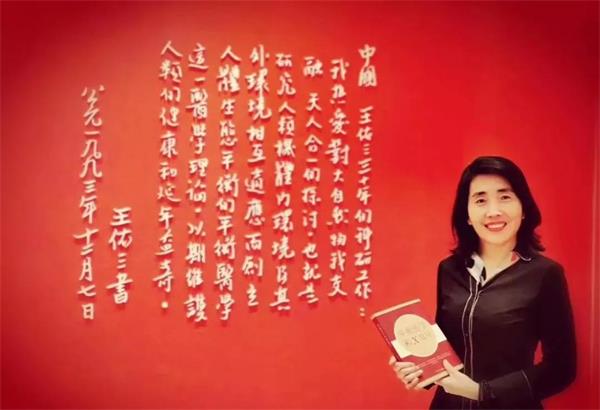 中國 王佑三三十年的科研工作：
我热爱對大自然物我交
融 天人合一的探讨，也就是
研究人類機體内環境及其
外環境相互適應而創立
人體生態平衡的平衡醫學
這一醫學理論，以期維護
人類的健康和延年益寿。
王佑三書
公元一九九三年十二月七日